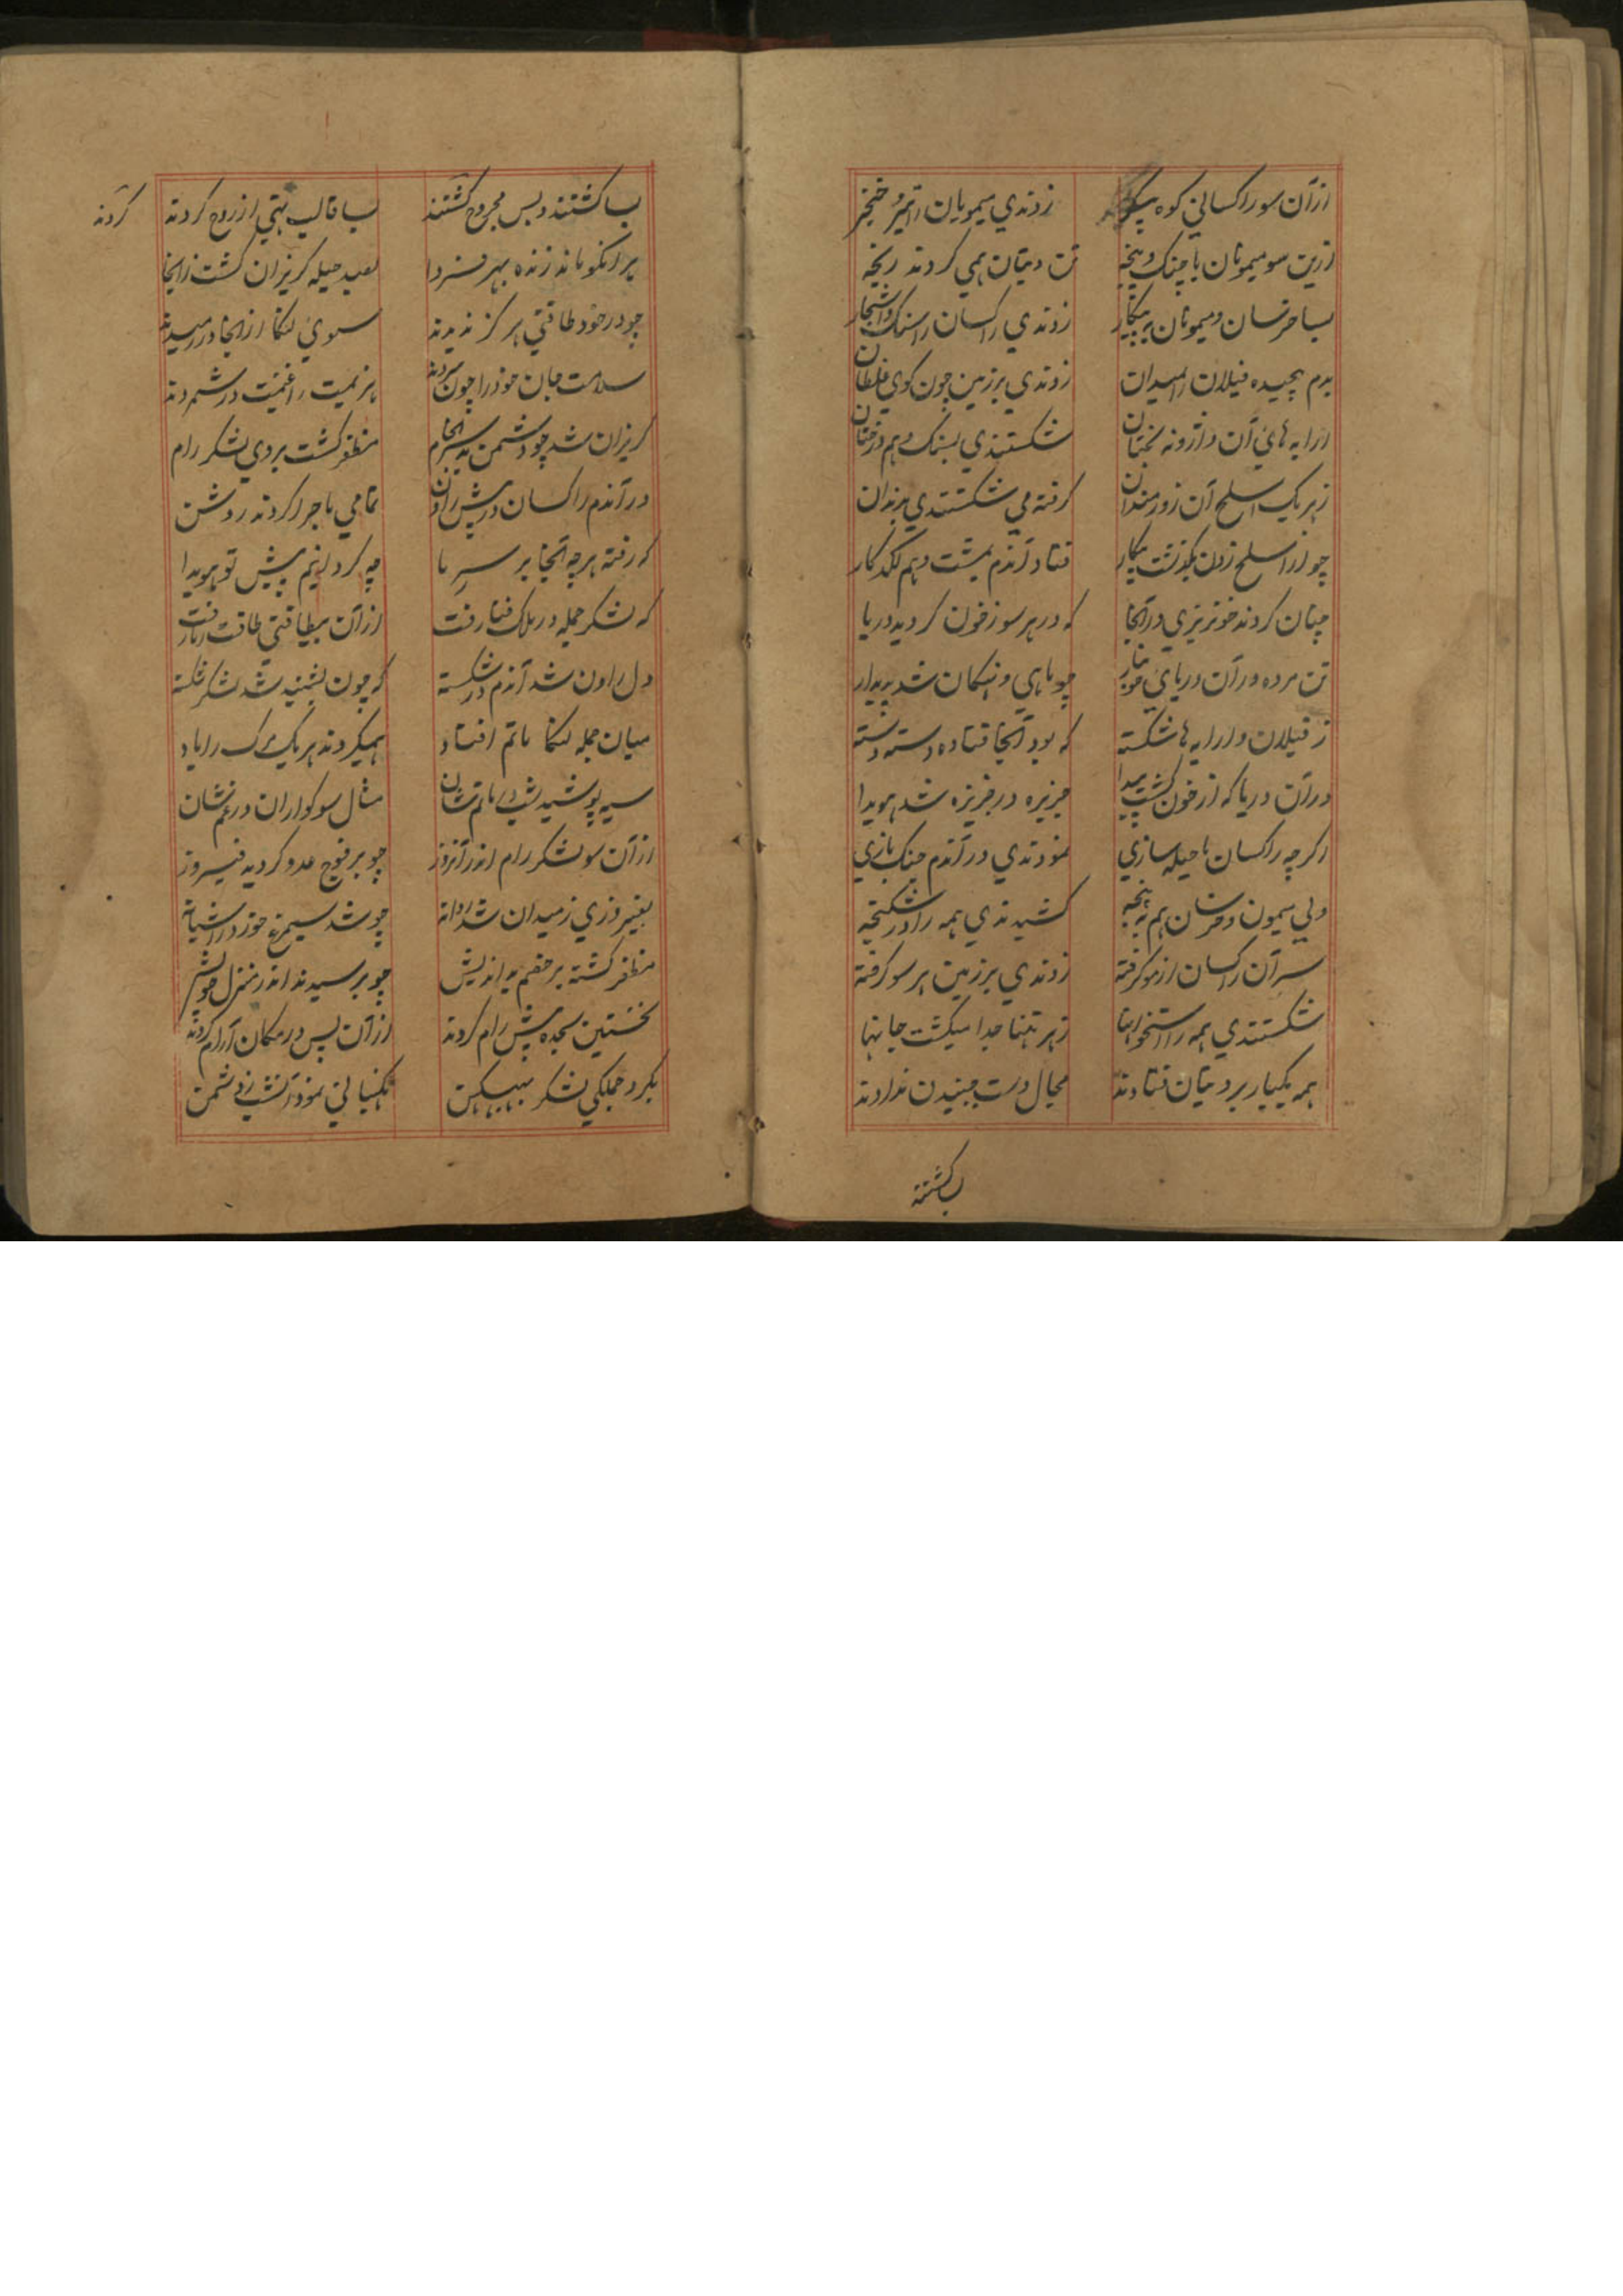 ازآن سو راکسانی کوه پیکر زدندی میمونان را تیر و خنجر
زین سو میمونان با چنک و پنجه تن دیتان همی کردند رنجه
بسا خرسان و میمونان به پیکار زدندی راکسان را سنک و اشجار
بدم پیچیده فیلان را بمیدان زدندی بر زمین چون کوی غلطان
ارابه های آن واژونه بختان شکستندی بسنک و هم درختان
زهر یک اسلح آن زورمندان گرفته می شکستندی بدندان
چو از اسلح زدن بگذشت پیکار فتاد آندم بمشت و هم لکد کار
چنان کردند خونریزی در آنجا که در هر سو ز خون کردید دریا
تن مرده در آن دریای خونبار چو ماهی و نهنکان شد پدیدار
ز فیلان و ارابه ها شکسته که بود آنجا فتاده دسته دسته
در آن دریا که از خون کشت پیدا جزیره در جزیره شد هویدا
اکرچه راکسان با حیله سازی نمودندی در آندم جنک بازی
ولی میمون و خرسان هم به پنجه کشیدندی همه را در شکنجه
سر آن راکسان از مو کرفته زدندی بر زمین هر سو کرفته
شکستندی همه را استخوانها ز هر تنها جدا میکشت جانها
همه یکبار بر دیتان فتادند مجال دست جنبیدن ندادند
بکشتند
بسا کشتند و بس مجروح کشتند بسا قالب تهی از روح کردند
کردند
پر انکو ماند زنده بهر فردا بصد حیله کریزان کشت زانجا
چو در خود طاقتی هرکز ندیدند سوی لنکا از آنجا در رمیدند
سلامت جان خود را چون ببردند هزیمت را غنیمت در شمردند
کریزان شد چو دشمن بد سرانجام مظفر کشت بر وی لشکر رام
در آندم راکسان در پیش راون تمامی ماجرا کردند روشن
که رفته هرچه آنجا بر سر ما چه کردانیم پیش تو هویدا
که لشکر جمله در ملک فنا رفت از آن بیطاقتی طاقت ز ما رفت
دل راون شد آندم در شکسته که چون بشنید شد لشکر شکسته
میان جمله لنکا ماتم افتاد همیکردند هر یک مرک را یاد
سیه پوشید شب در ماتم شان مثال سوکواران در غم شان
از آن سو لشکر رام اندر آنروز چو بر فوج عدو کردید فیروز
بفیروزی ز میدان شد روانه چو شد سیمرغ خور در آشیانه
مظفر کشته بر خصم بد اندیش چو برسیدند اندر منزل خویش
نخستین سجده پیش رام کردند از آن پس در مکان آرام کردند
بکرد جملکی لشکر بهبیکن نکهبانی نمود آنشب ز دشمن